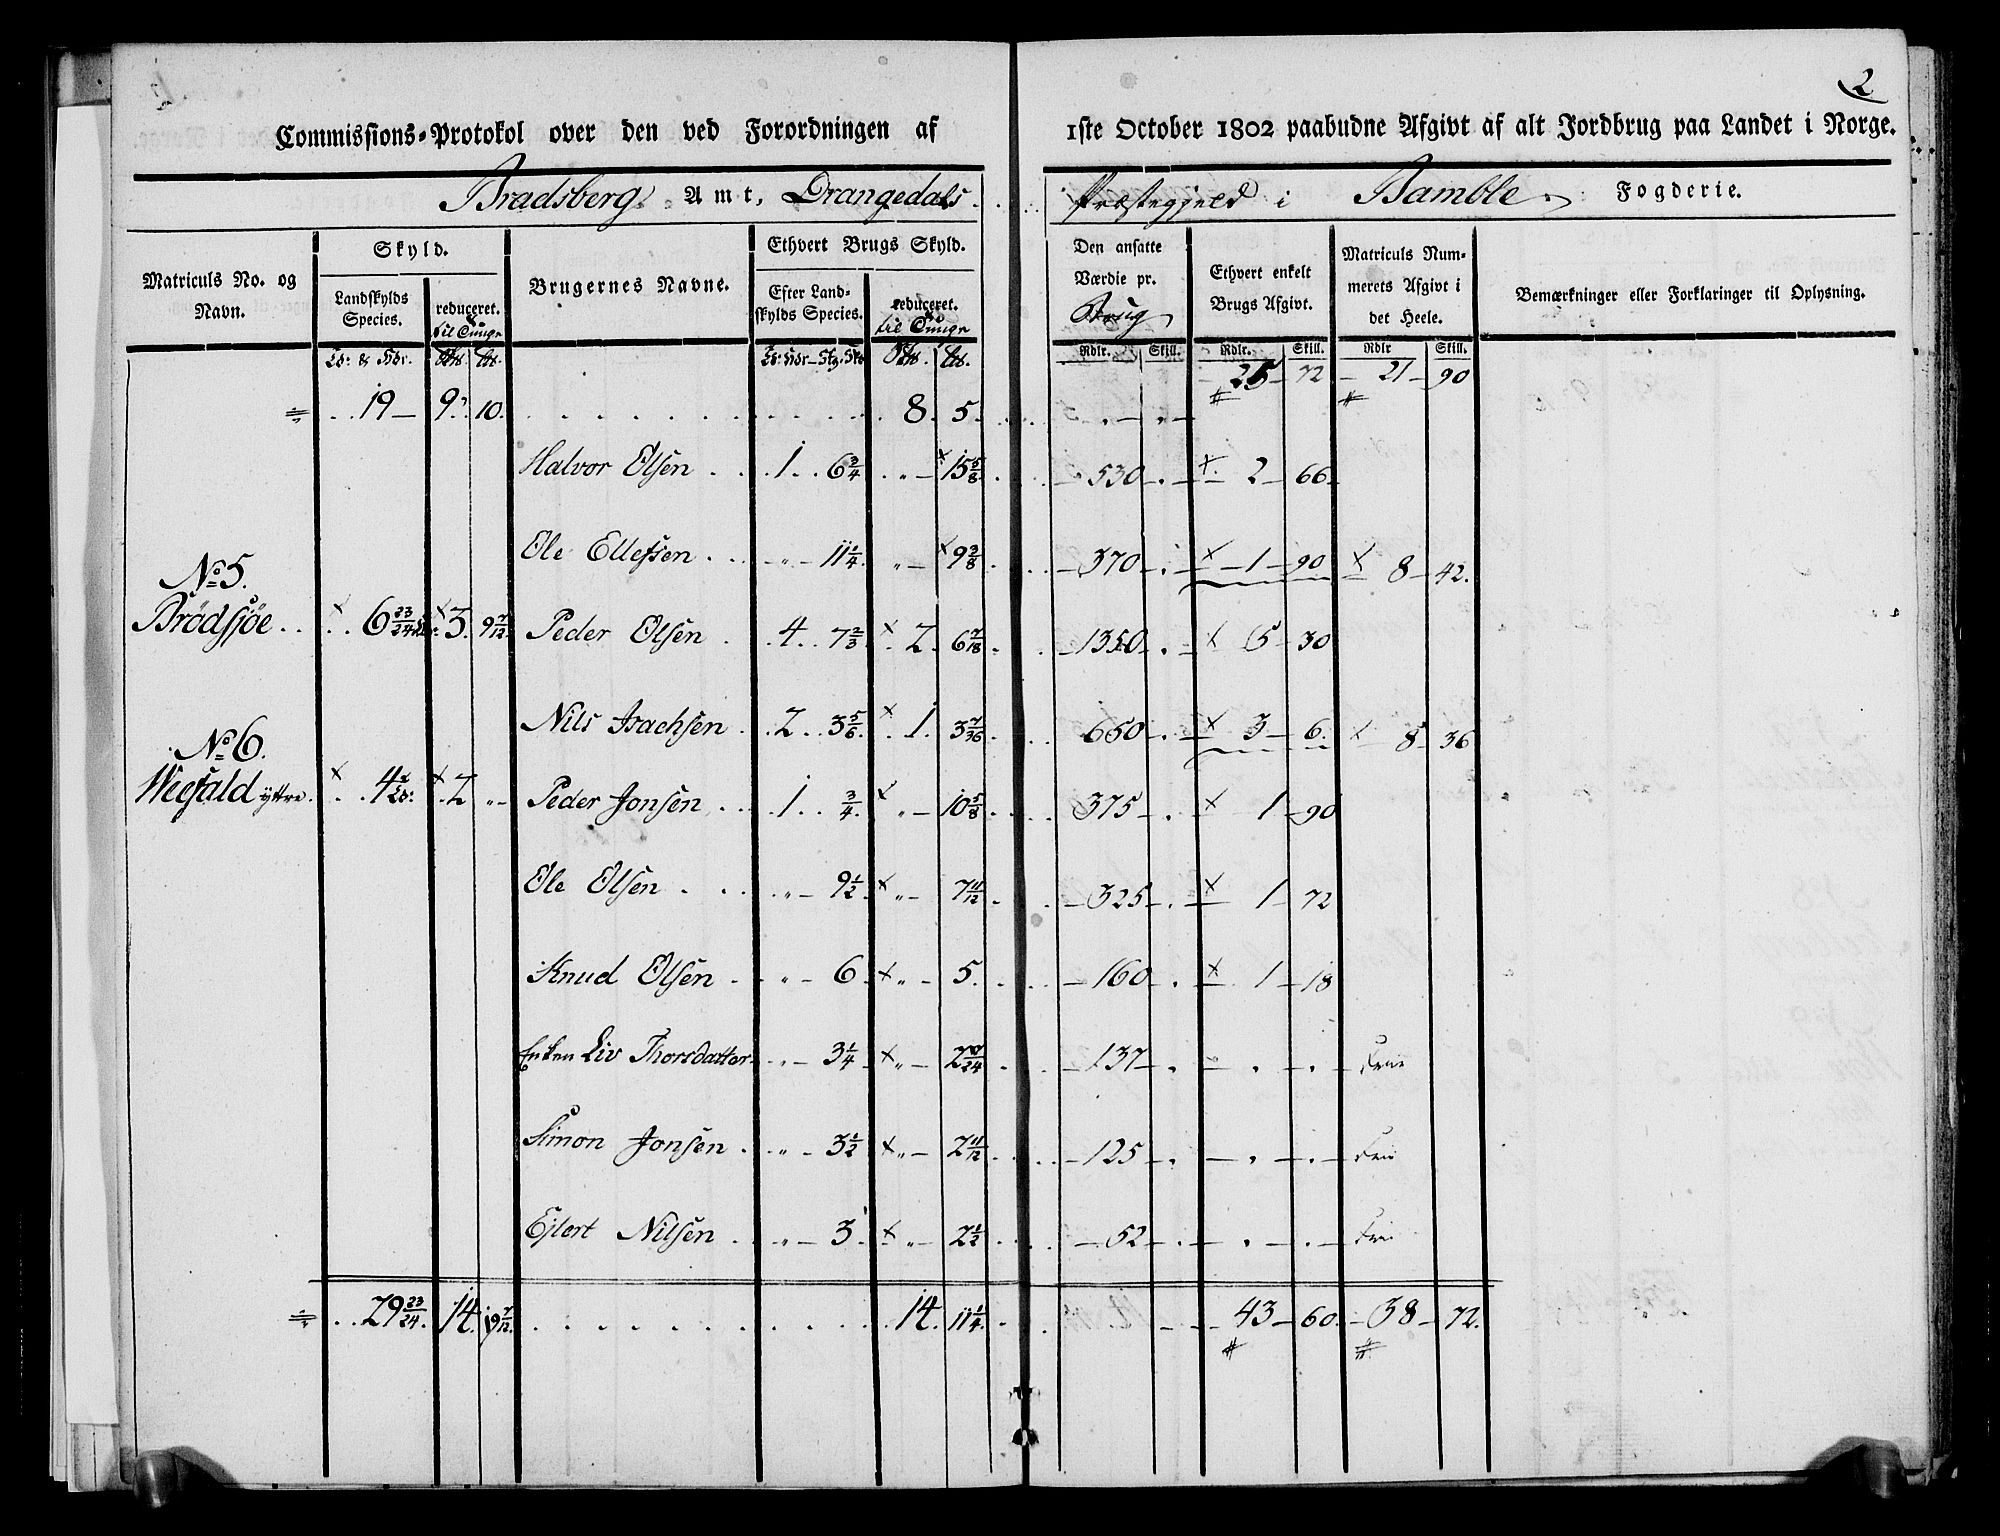 2
Commissions-Protokol over den ved Forordningen af 1ste October 1802 paabudne Afgivt af alt Jordbrug paa Landet i Norge.
Bradsberg Amt, Drangedals Præstegjeld i Bamble Fogderie.
Matriculs No. og Navn.
Skyld.
Landskylds Species.
reduceret. til Tunge
Brugernes Navne.
Ethvert Brugs Skyld.
Efter Landskylds Species.
reduceret. til Tunge
Den ansatte Værdie pr. Brug
Ethvert enkelt Brugs Afgivt.
Matriculs Nummerets Afgivt i det Heele.
Bemærkninger eller Forklaringer til Oplysning.
Rdlr. Skill. Rdlr. Skill. Rdlr Skill.
19 9 10. 8. 5. 25 72 21 90
Halvor Olsen 1 6 3/4 15 5/8 530 2 66
Ole Ellefsen 11 1/4 9 3/8 370 1 90 8 42.
No 5.
Brödsjöe 6 23/24 3 9 7/12 Peder Olsen 4 7 2/3 2 6 7/18 1350 5 30
Nils Isachsen 2 3 5/6 1 3 7/36 650 3 6 8 36
No 6.
Weefald yttre 4 2 Peder Jonsen 1 3/4 10 5/8 375 1 90
Ole Olsen 9 1/2 7 11/12 325 1 72
Knud Olsen 6 5. 160 1 18
Enken Liv Thorsdatter 3 1/4 2 17/24 137 Frie
Simon Jonsen 3 1/2 2 11/12 125 Frie
Ejlert Nilsen 3 2 1/2 52 Frie
29 23/24 14 19 7/12 14. 11 1/4 43 60 38 72.